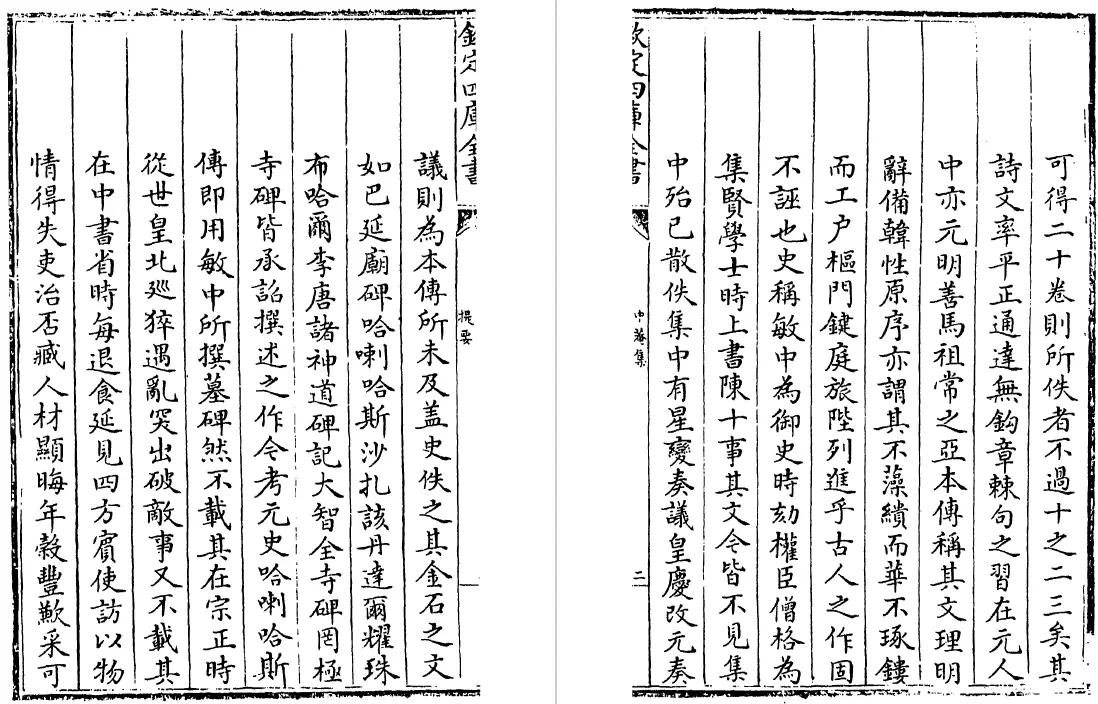 可得二十卷則所佚者不過十之二三矣其
詩文率平正通達無鈎章棘句之習在元人
中亦元明善馬祖常之亞本傳稱其文理明
辭備韓性原序亦謂其不藻繢而華不琢鏤
而工户樞門鍵庭旅陛列進乎古人之作固
不誣也史稱敏中為御史時劾權臣僧格為
集賢學士時上書陳十事其文今皆不見集
中殆已散佚集中有星變奏議皇慶改元奏
欽定四庫全書
中菴集
二
欽定四庫全書
提要
議則為本傳所未及盖史佚之其金石之文
如巴延廟碑哈喇哈斯沙扎該丹達爾耀珠
布哈爾李唐諸神道碑記大智全寺碑罔極
寺碑皆承詔撰述之作今考元史哈喇哈斯
傳即用敏中所撰墓碑然不載其在宗正時
從世皇北廵猝遇亂突出破敵事又不載其
在中書省時每退食延見四方賔使訪以物
情得失吏治否臧人材顯晦年穀豐歉采可